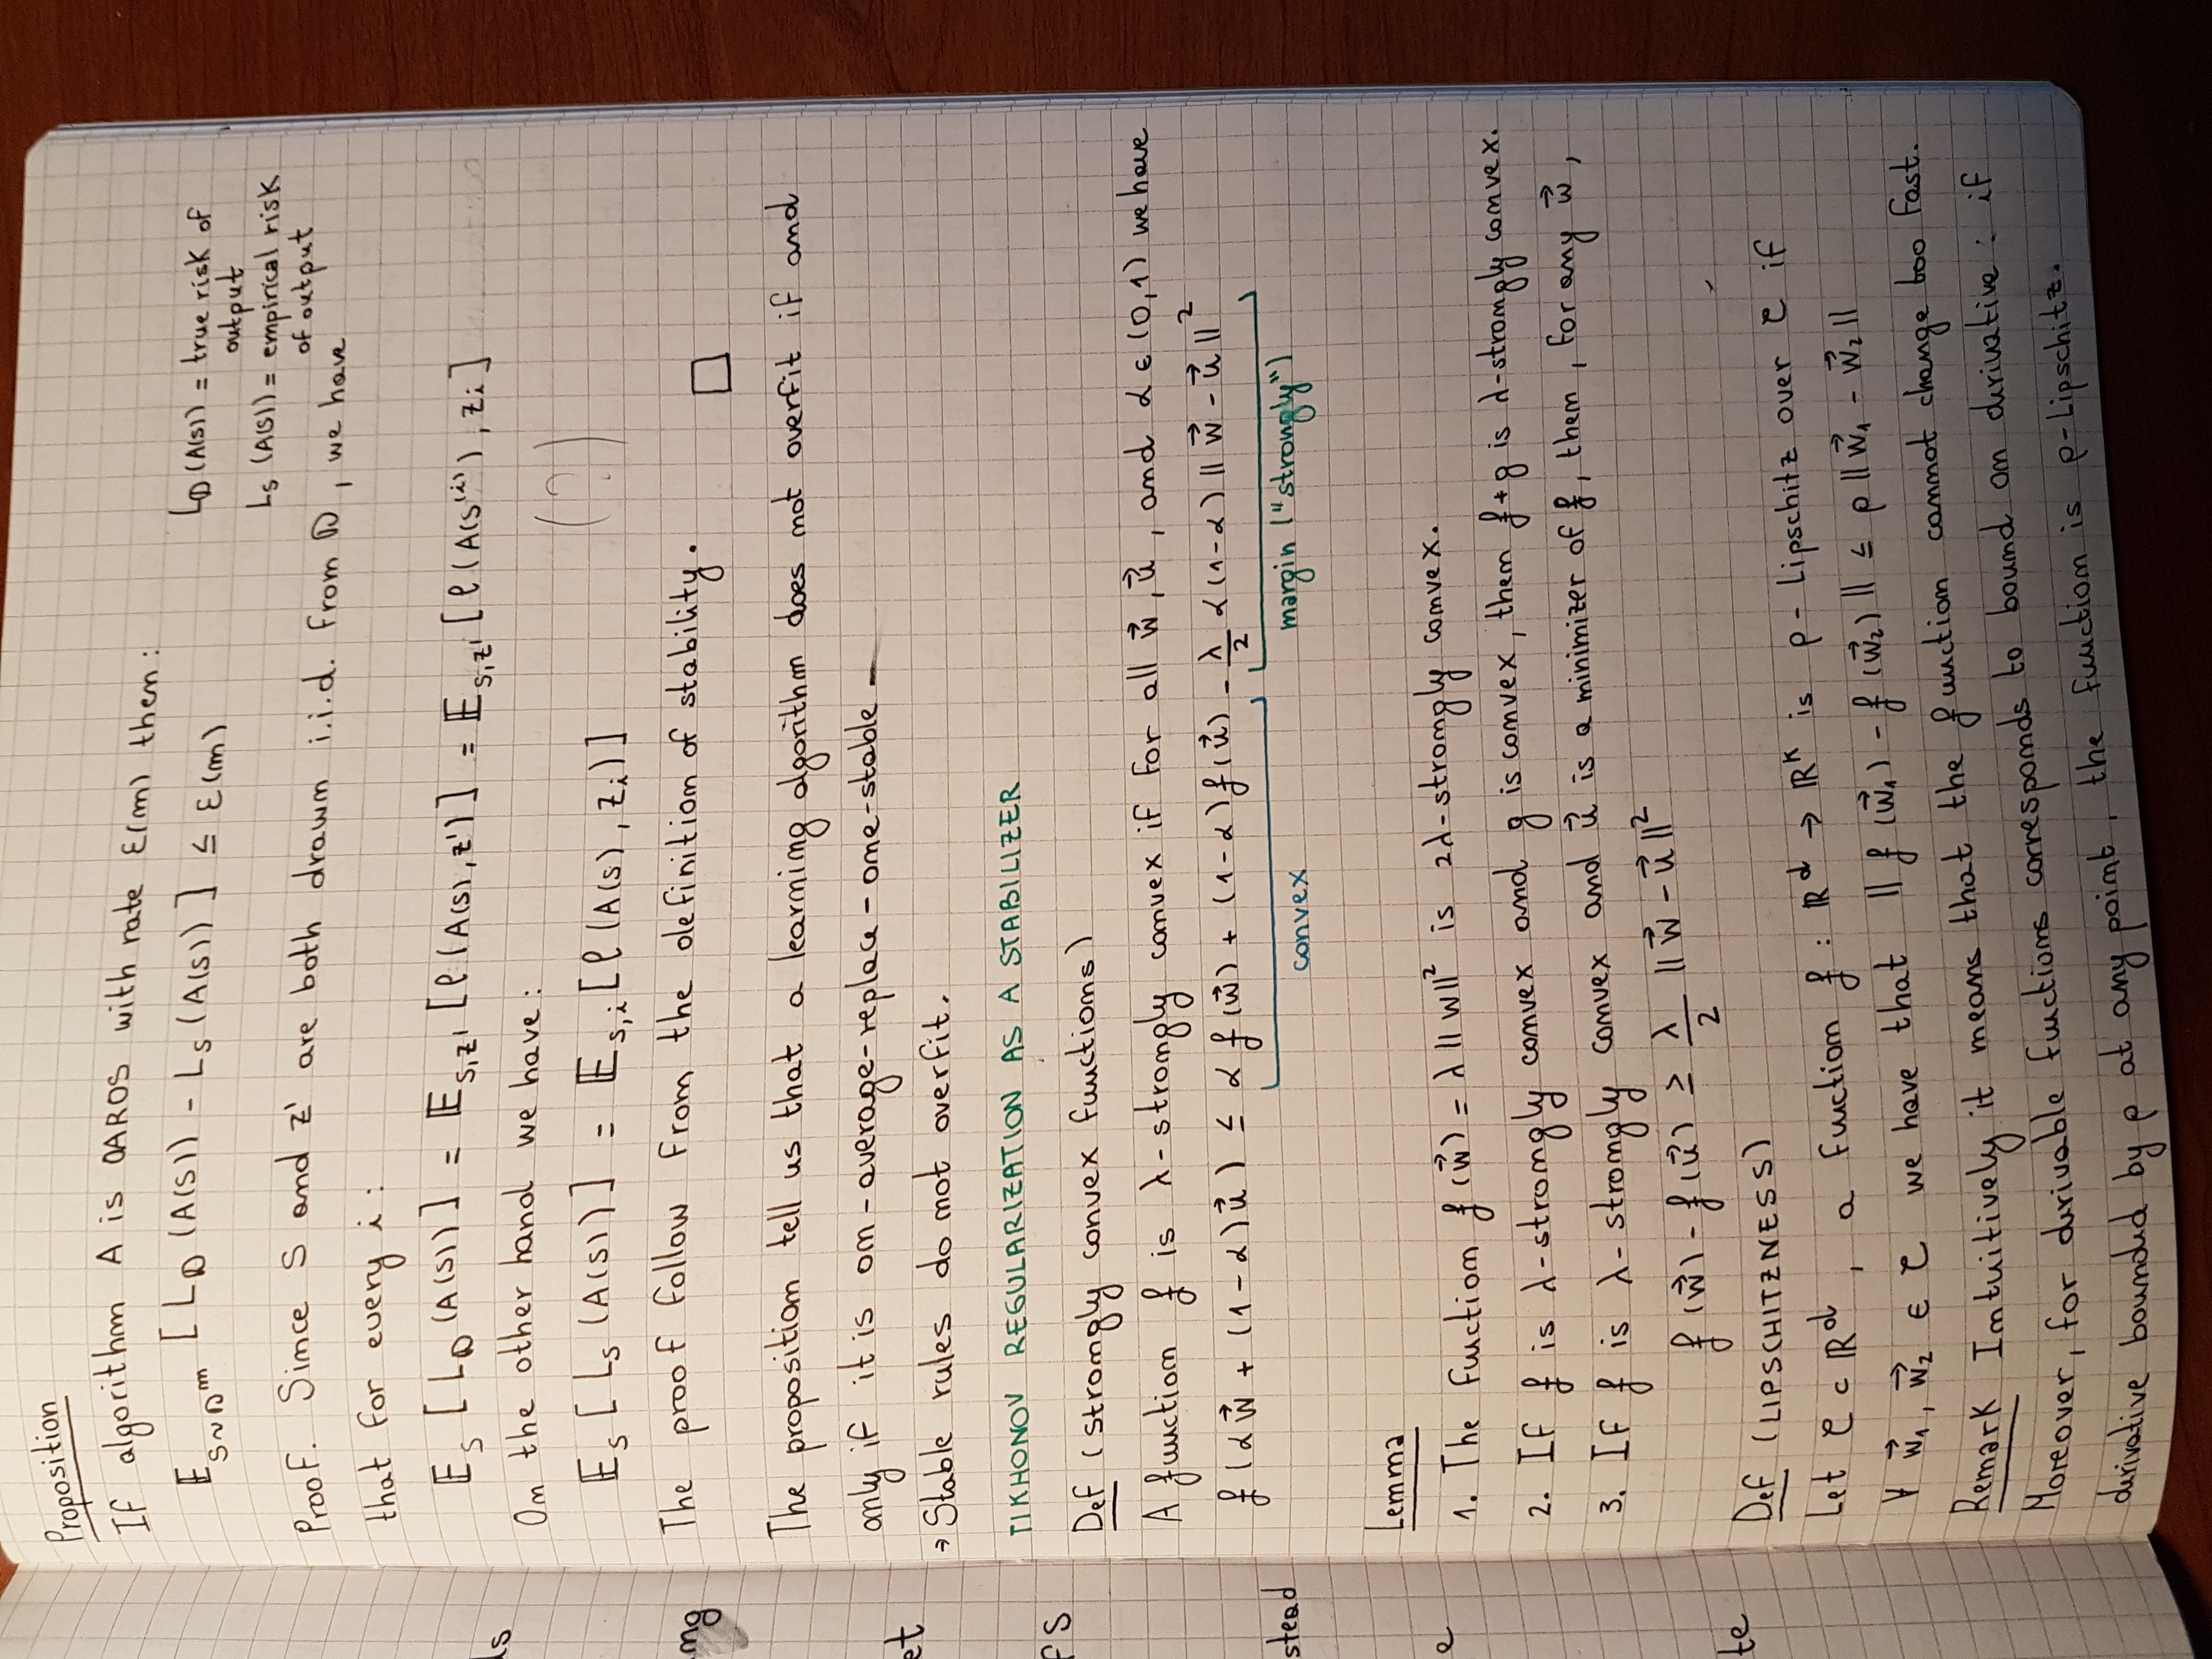 Proposition
If algorithm A is OAROS with rate ε(m) then:
E_{S∼D^m} [ L_D (A(S)) - L_S (A(S)) ] ≤ ε(m)
L_D (A(S)) = true risk of
output
L_S (A(S)) = empirical risk
of output
Proof. Since S and z' are both drawn i.i.d. from D, we have
that for every i:
E_S [ L_D (A(S)) ] = E_{S,z'} [ ℓ (A(S), z') ] = E_{S,z'} [ ℓ (A(S^{(i)}), z_i ]
On the other hand we have:
(?)
E_S [ L_S (A(S)) ] = E_{S,i} [ ℓ (A(S), z_i) ]
The proof follow from the definition of stability. □
The proposition tell us that a learning algorithm does not overfit if and
only if it is on-average-replace-one-stable -
→ Stable rules do not overfit.
TIKHONOV REGULARIZATION AS A STABILIZER
Def (strongly convex functions)
A function f is λ-strongly convex if for all w⃗, u⃗, and α ∈ (0,1) we have
f (α w⃗ + (1-α) u⃗) ≤ α f (w⃗) + (1-α) f (u⃗) - λ/2 α (1-α) || w⃗ - u⃗ ||²
convex margin ("strongly")
Lemma
1. The function f (w⃗) = λ || w ||² is 2λ-strongly convex.
2. If f is λ-strongly convex and g is convex, then f+g is λ-strongly convex.
3. If f is λ-strongly convex and u⃗ is a minimizer of f, then, for any w⃗,
f (w⃗) - f (u⃗) ≥ λ/2 || w⃗ - u⃗ ||²
Def (LIPSCHITZNESS)
Let C ⊂ ℝ^d, a function f : ℝ^d → ℝ^k is ρ-Lipschitz over C if
∀ w⃗₁, w⃗₂ ∈ C we have that || f (w⃗₁) - f (w⃗₂) || ≤ ρ || w⃗₁ - w⃗₂ ||
Remark Intuitively it means that the function cannot change too fast.
Moreover, for derivable functions corresponds to bound on derivative: if
derivative bounded by ρ at any point, the function is ρ-Lipschitz.
ds
ng
et
fs
stead
e
te